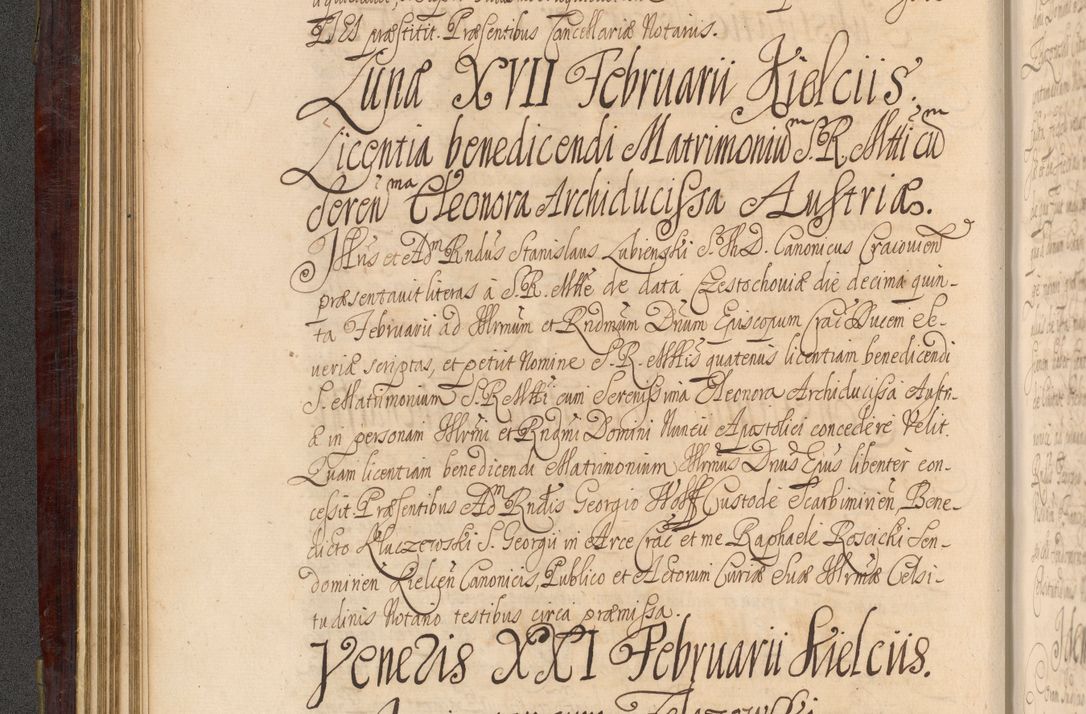 P ES præstitit. Præsentibus Cancellariæ Notariis.
Lunæ XVII Februarii Kielciis.
Licentia benedicendi Matrimoniũ S. R. Mtti cũ
Seren̄ma Eleonora Archiducissa Austriæ.
Illris et Adm Rndus Stanislaus Lubienski S. Th. D. Canonicus Cracovien
præsentavit literas à S. R. Mtte de data Częstochoviæ die decima quin-
ta Februarii ad Illrmum et Rndmum Dnum Episcopum Crac Ducem Se-
veriæ scriptas, et petiit Nomine S. R. Mttis quatenus licentiam benedicendi
S. Matrimonium S. R. Mtti cum Serenissima Eleonora Archiducissa Austri-
æ in personam Illrmi et Rndmi Domini Nuncii Apostolici concedere Velit.
Quam licentiam benedicendi Matrimonium Illrmus Dnus Eius libenter con-
cessit. Præsentibus Adm Rndis Georgio Wolff Custode Scarbimirien, Bene-
dicto Kluczewski S. Georgii in Arce Crac et me Raphaele Roscicki Sen-
domirien Kielcen Canonicis, Publico et Actorum Curiæ Suæ Illrmæ Celsi-
tudinis Notario testibus circa præmissa.
Veneris XXI Februarii Kielciis.